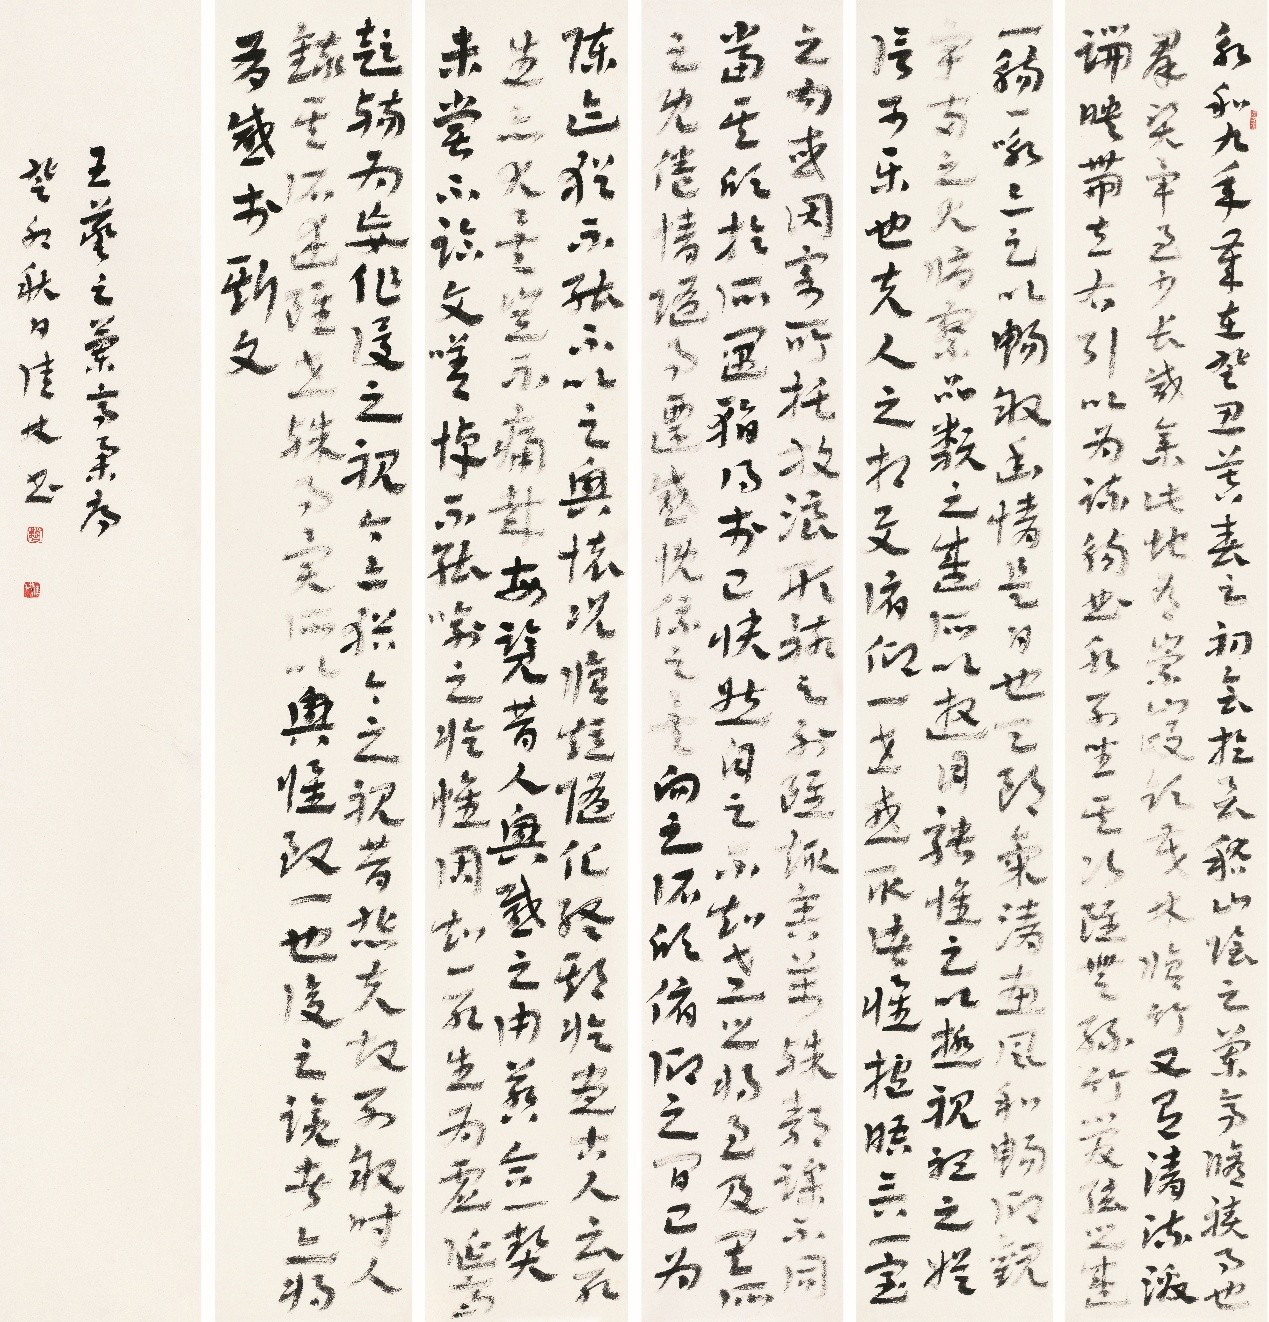 永和九年歲在癸丑暮春之初會於會稽山陰之蘭亭脩稧事也
羣賢畢至少長咸集此地有崇山峻領茂林脩竹又有清流激
湍映帶左右引以為流觴曲水列坐其次雖無絲竹管弦之盛
一觴一詠亦足以暢敘幽情是日也天朗氣清惠風和暢仰觀
宇宙之大俯察品類之盛所以遊目騁懷足以極視聽之娛
信可樂也夫人之相與俯仰一世或取諸懷抱悟言一室
之內或因寄所託放浪形骸之外雖趣舍萬殊靜躁不同
當其欣於所遇暫得於己快然自足不知老之將至及其所
之既倦情隨事遷感慨係之矣向之所欣俯仰之間已為
陳迹猶不能不以之興懷況脩短隨化終期於盡古人云死
生亦大矣豈不痛哉每覽昔人興感之由若合一契
未嘗不臨文嗟悼不能喻之於懷固知一死生為虛誕齊
彭殤為妄作後之視今亦猶今之視昔悲夫故列敘時人
錄其所述雖世殊事異所以興懷致一也後之覽者亦將
有感於斯文
王羲之蘭亭集序
癸卯秋日佳林書